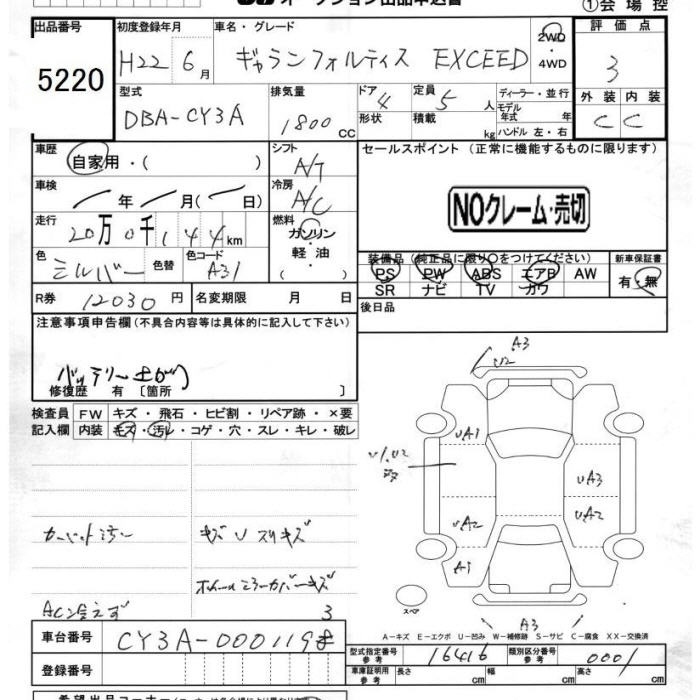 オークション出品申込書
①会場控
出品番号 初度登録年月 車名・グレード 2WD 評価点
5220 H22 6月 ギャランフォルティス EXCEED ・4WD 3
型式 排気量 ドア 4 定員 5人 ディーラー・並行 外装 内装
DBA-CY3A 1800cc 形状 積載 kg モデル年式 年 C C
ハンドル 左・右
車歴 自家用・( ) シフト A/T セールスポイント(正常に機能するものに限ります)
車検 年 月(日) 冷房 A/C NOクレーム・売切
走行 20万0千144km 燃料 ガソリン
軽油・( )
装備品(純正品に限り○をつけてください) 新車保証書
色 シルバー 色替 色コード A31 PS PW ABS エアB AW 有・無
R券 12030円 名変期限 月 日 SR ナビ TV カワ
後日品
注意事項申告欄(不具合内容等は具体的に記入して下さい)
修復歴 有 〔箇所 〕
検査員 FW キズ・飛石・ヒビ割・リペア跡・×要
記入欄 内装 キズ・汚レ・コゲ・穴・スレ・キレ・破レ
A3
U2
UA1
UA3
UA2 UA2
A1
カーペット汚レ キズ U スリキズ
ホイールミラーカバーキズ
AC冷えず 3
スペア
A3
車台番号 A-キズ E-エクボ U-凹み W-補修跡 S-サビ C-腐食 XX-交換済
型式指定番号 参考 16416 類別区分番号 参考 0001
登録番号 車庫証明用 参考 長さ cm 幅 cm 高さ cm